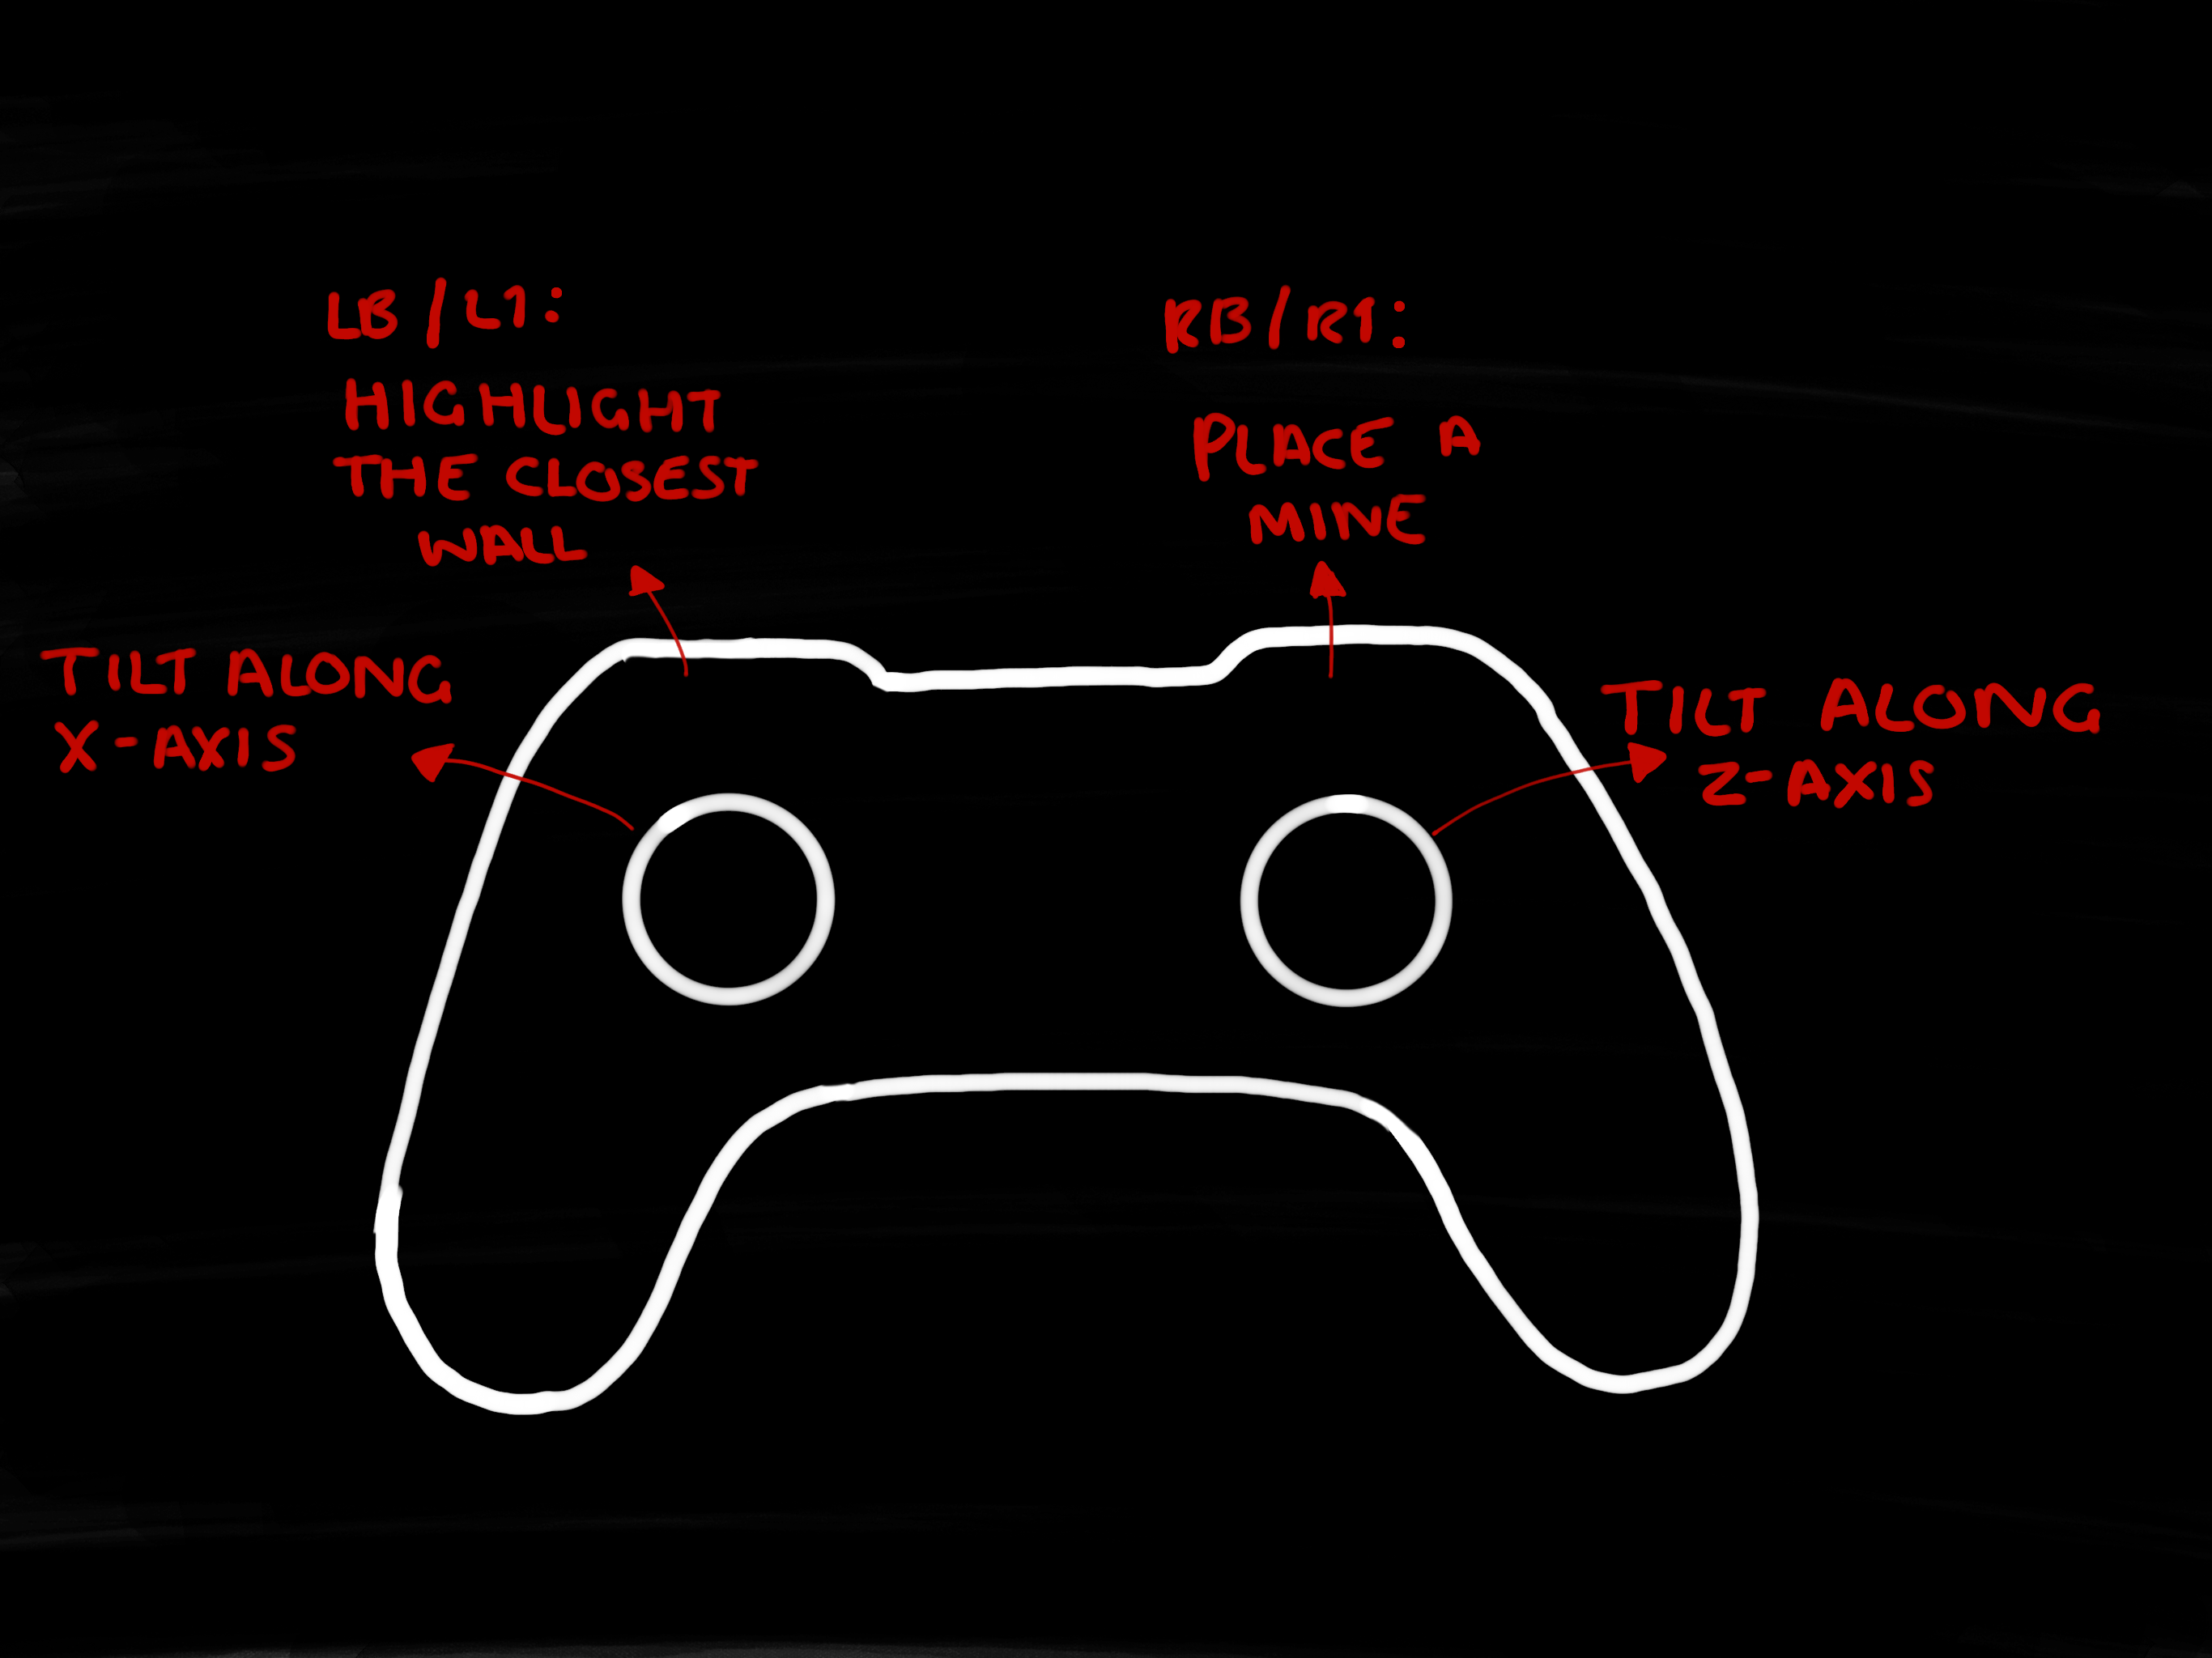 LB/L1:
HIGHLIGHT
THE CLOSEST
WALL
RB/R1:
PLACE A
MINE
TILT ALONG
X-AXIS
TILT ALONG
Z-AXIS